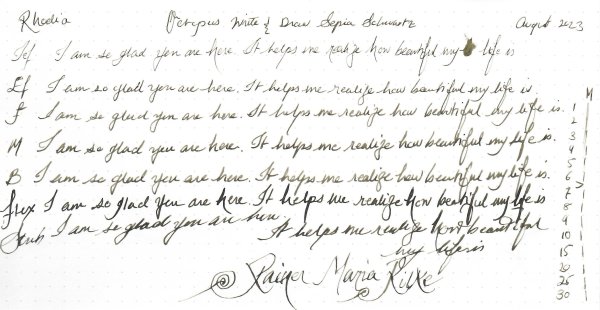 Rhodia Octopus Write & Draw Sepia Schwartz August 2023
Eef I am so glad you are here. It helps me realize how beautiful my life is
Ef I am so glad you are here. It helps me realize how beautiful my life is.
F I am so glad you are here. It helps me realize how beautiful my life is.
M I am so glad you are here. It helps me realize how beautiful my life is.
B I am so glad you are here. It helps me realize how beautiful my life is.
flex I am so glad you are here. It helps me realize how beautiful my life is
Stub I am so glad you are here It helps me realize how beautiful
my life is
Rainer Maria Rilke
M
1
2
3
4
5
6
7
8
9
10
15
20
25
30